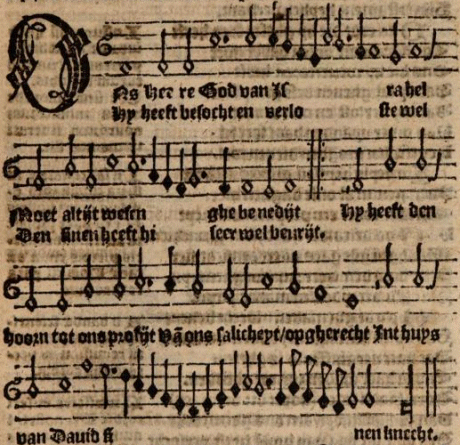 Ons hee re God van Is rahel
Hy heeft besocht en verlo ste wel
Moet altijt wesen ghe benedijt Hy heeft den
Den sinen heeft hi seer wel bevrijt.
hoorn tot ons profijt Vā ons salicheyt/opgherecht Int huys
van David si nen knecht.